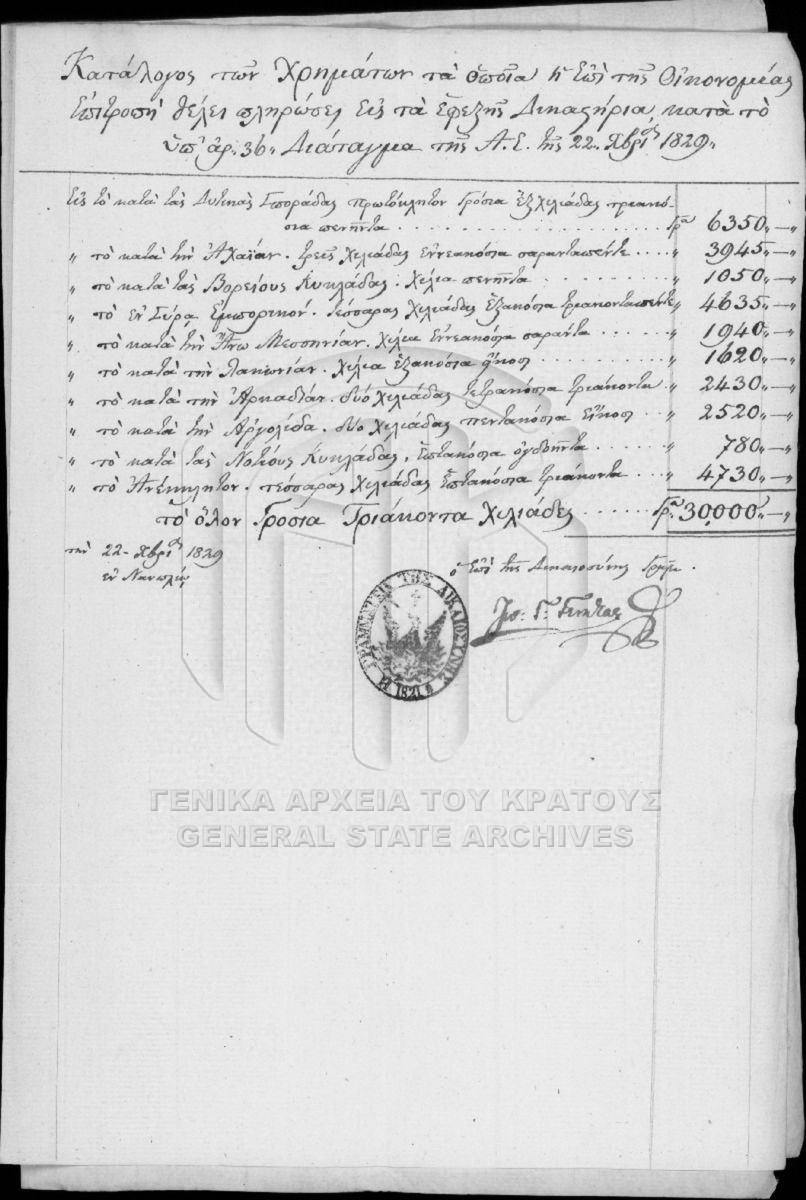 Κατάλογος τῶν Χρημάτων τὰ ὁποῖα ἡ ἐπὶ τῆς Οἰκονομίας
Ἐπιτροπὴ θέλει πληρώσει εἰς τὰ ἐφεξῆς Δικαστήρια, κατὰ τὸ
ὑπ' ἀρ. 36 Διάταγμα τῆς Α.Ε. τῆς 22 Χβρίου 1829
Εἰς τὸ κατὰ τὰς Δυτικὰς Σποράδας πρωτόκλητον Γρόσια ἑξ χιλιάδας τριακό-
σια πενῆντα . . . . . Γρ. 6350 „ — „
„ τὸ κατὰ τὴν Ἀχαΐαν. τρεῖς χιλιάδας ἐννεακόσια σαρανταπέντε . . . . „ 3945 „ — „
„ τὸ κατὰ τὰς Βορείους Κυκλάδας. χίλια πενῆντα . . . . . „ 1050 „ — „
„ τὸ ἐν Σύρᾳ ἐμπορικόν. τέσσαρας χιλιάδας ἑξακόσια τριακονταπέντε „ 4635 „ — „
„ τὸ κατὰ τὴν Ἄνω Μεσσηνίαν. χίλια ἐννεακόσια σαράντα . . . . „ 1940 „ — „
„ τὸ κατὰ τὴν Λακωνίαν. χίλια ἑξακόσια εἴκοσι . . . . . „ 1620 „ — „
„ τὸ κατὰ τὴν Ἀρκαδίαν. δύο χιλιάδας τετρακόσια τριάκοντα „ 2430 „ — „
„ τὸ κατὰ τὴν Ἀργολίδα. δύο χιλιάδας πεντακόσια εἴκοσι . . „ 2520 „ — „
„ τὸ κατὰ τὰς Νοτίους Κυκλάδας. ἑπτακόσια ὀγδοῆντα . . . . . „ 780 „ — „
„ τὸ Ἀνέκκλητον. τέσσαρας χιλιάδας ἑπτακόσια τριάκοντα . . . „ 4730 „ — „
τὸ ὅλον Γρόσια Τριάκοντα Χιλιάδες . . . . . Γρ. 30,000 „ — „
τὴν 22 Χβρίου 1829
ἐν Ναυπλίῳ
ὁ ἐπὶ τῆς Δικαιοσύνης Γραμμ.
ΓΡΑΜΜΑΤΕΙΑ ΤΗΣ ΔΙΚΑΙΟΣΥΝΗΣ
1821
ΓΕΝΙΚΑ ΑΡΧΕΙΑ ΤΟΥ ΚΡΑΤΟΥΣ
GENERAL STATE ARCHIVES